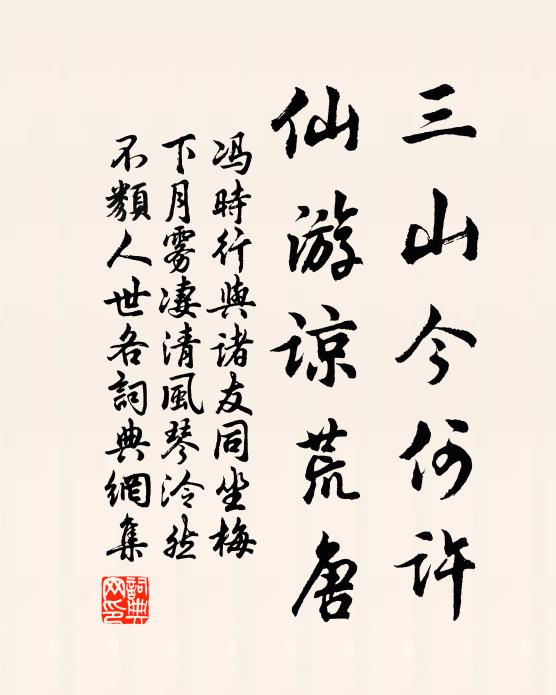 三山今何许
仙游谅荒唐
冯時行與诸友同坐梅
下月雾凄清風琴泠然
不類人世名詞典網集
詞典
网印